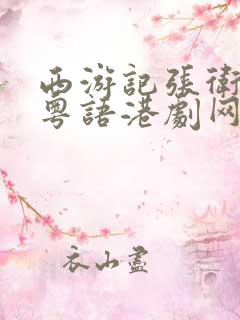 西游記張衛
粵語港劇网
衣山盡